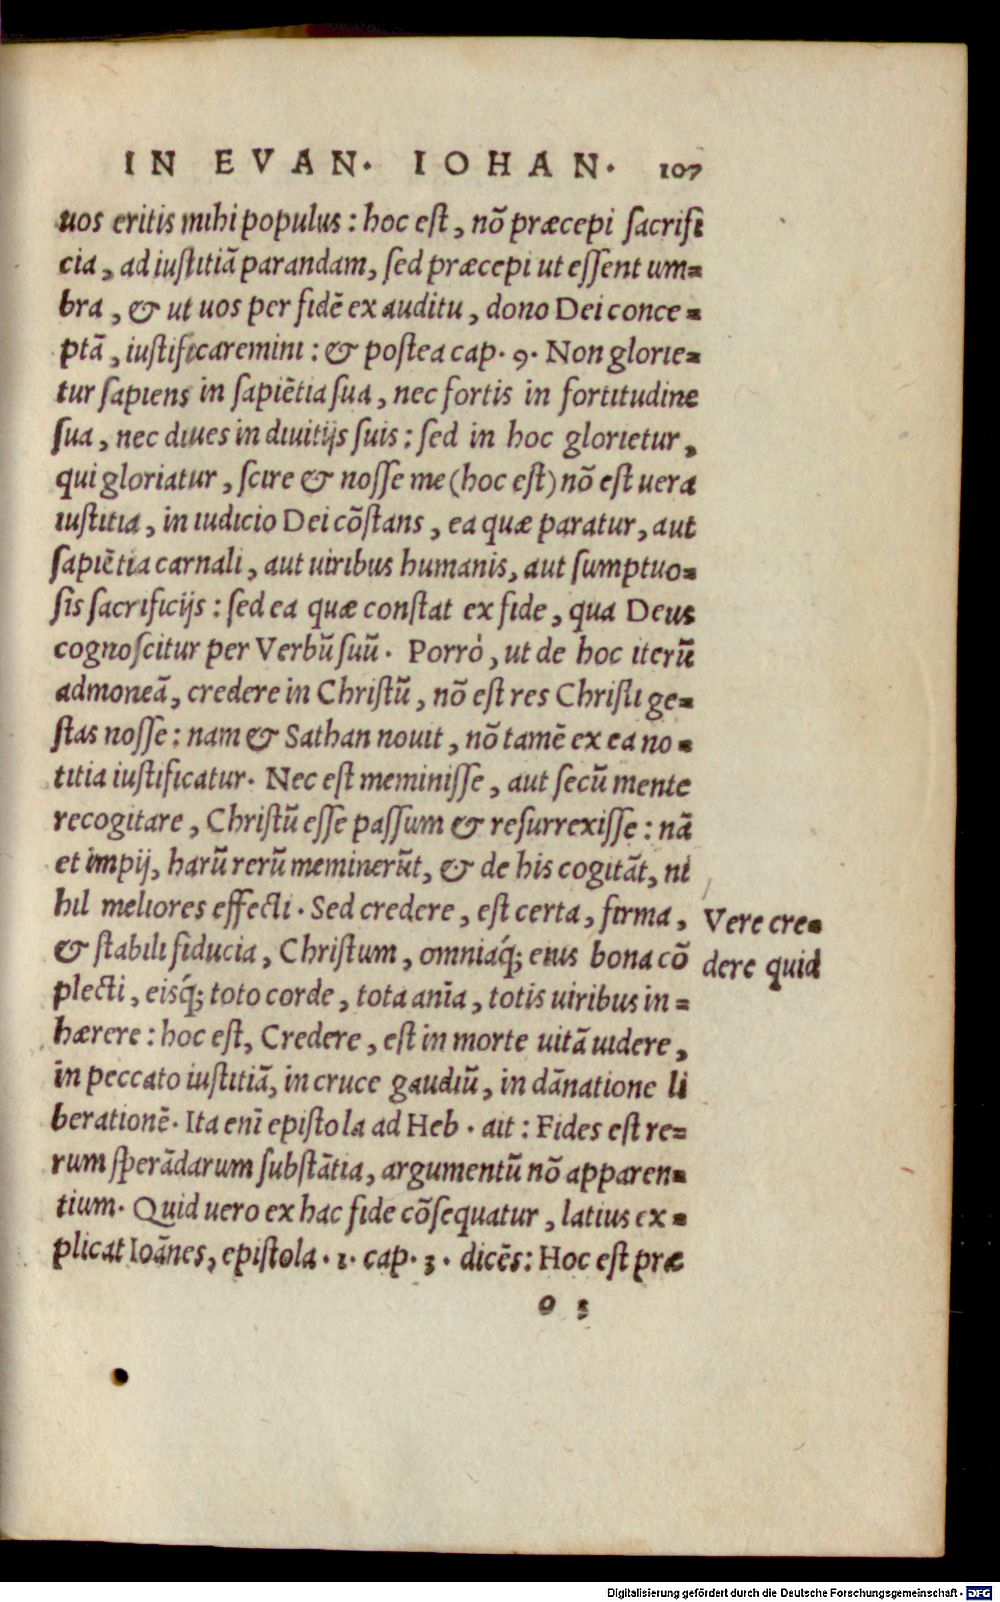 IN EVAN. IOHAN. 107
uos eritis mihi populus : hoc est, nõ præcepi sacrifi
cia, ad iustitiã parandam, sed præcepi ut essent um=
bra, & ut uos per fidẽ ex auditu, dono Dei conce=
ptã, iustificaremini : & postea cap. 9. Non glorie=
tur sapiens in sapiẽtia sua, nec fortis in fortitudine
sua, nec diues in diuitijs suis : sed in hoc glorietur,
qui gloriatur, scire & nosse me (hoc est) nõ est uera
iustitia, in iudicio Dei cõstans, ea quæ paratur, aut
sapiẽtia carnali, aut uiribus humanis, aut sumptuo=
sis sacrificijs : sed ea quæ constat ex fide, qua Deus
cognoscitur per Verbũ suũ. Porrò, ut de hoc iterũ
admoneã, credere in Christũ, nõ est res Christi ge=
stas nosse : nam & Sathan nouit, nõ tamẽ ex ea no=
titia iustificatur. Nec est meminisse, aut secũ mente
recogitare, Christũ esse passum & resurrexisse : nã
et impij, harũ rerũ meminerũt, & de his cogitãt, ni
hil meliores effecti. Sed credere, est certa, firma,
& stabili fiducia, Christum, omniaq́; eius bona cõ
plecti, eisq́; toto corde, tota anĩa, totis uiribus in=
hærere : hoc est, Credere, est in morte uitã uidere,
in peccato iustitiã, in cruce gaudiũ, in dãnatione li
berationẽ. Ita enĩ epistola ad Heb. ait : Fides est re=
rum sperãdarum substãtia, argumentũ nõ apparen=
tium. Quid uero ex hac fide cõsequatur, latius ex=
plicat Ioãnes, epistola. 1. cap. 3. dicẽs : Hoc est præ
o 3
Vere cre=
dere quid
Digitalisierung gefördert durch die Deutsche Forschungsgemeinschaft - DFG